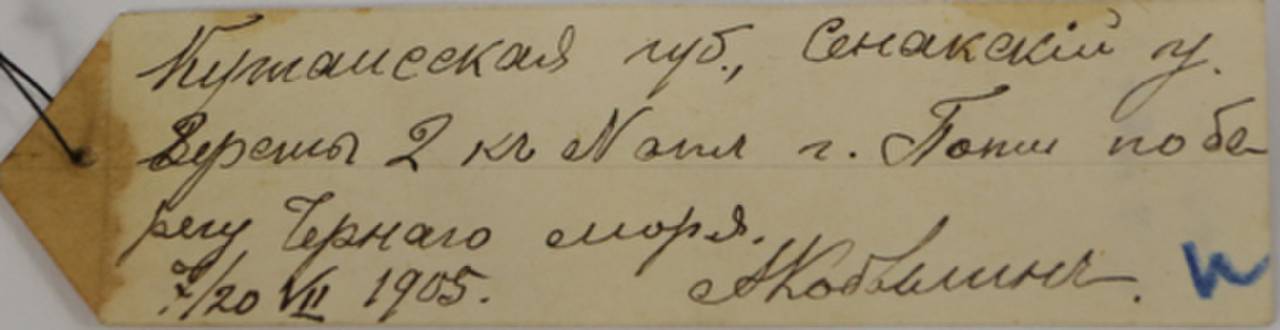 Кутаисская губ., Сенакскій у.
Версты 2 къ N отъ г. Поти по бе-
регу Чернаго моря.
7/20 VII 1905. АКобылинъ.